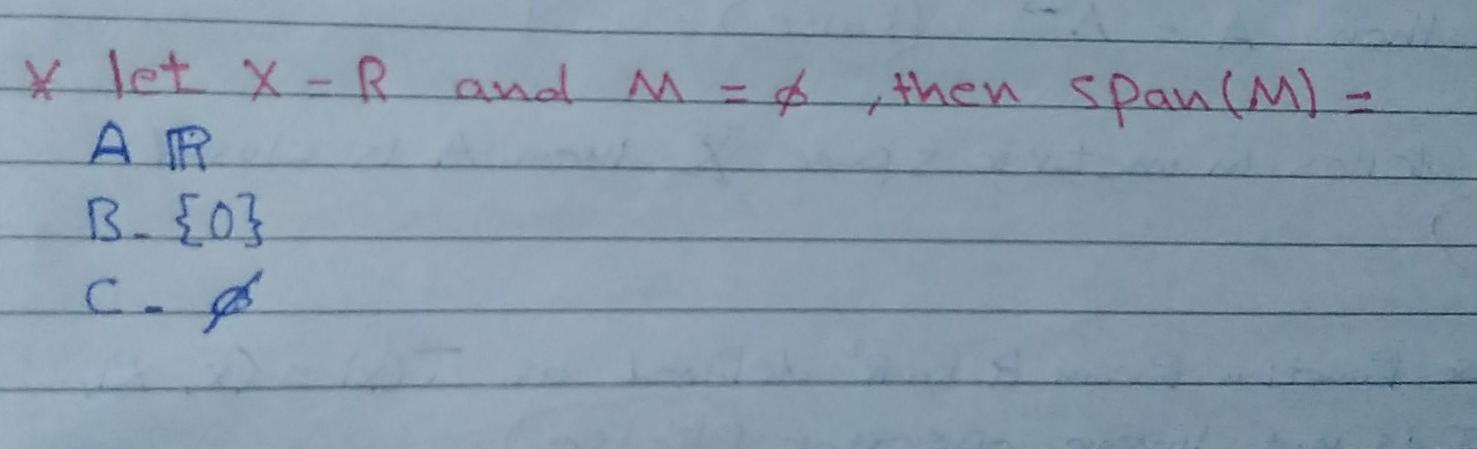 * let X = R and M = ϕ, then span(M) =
A ℝ
B- {0}
C- ϕ